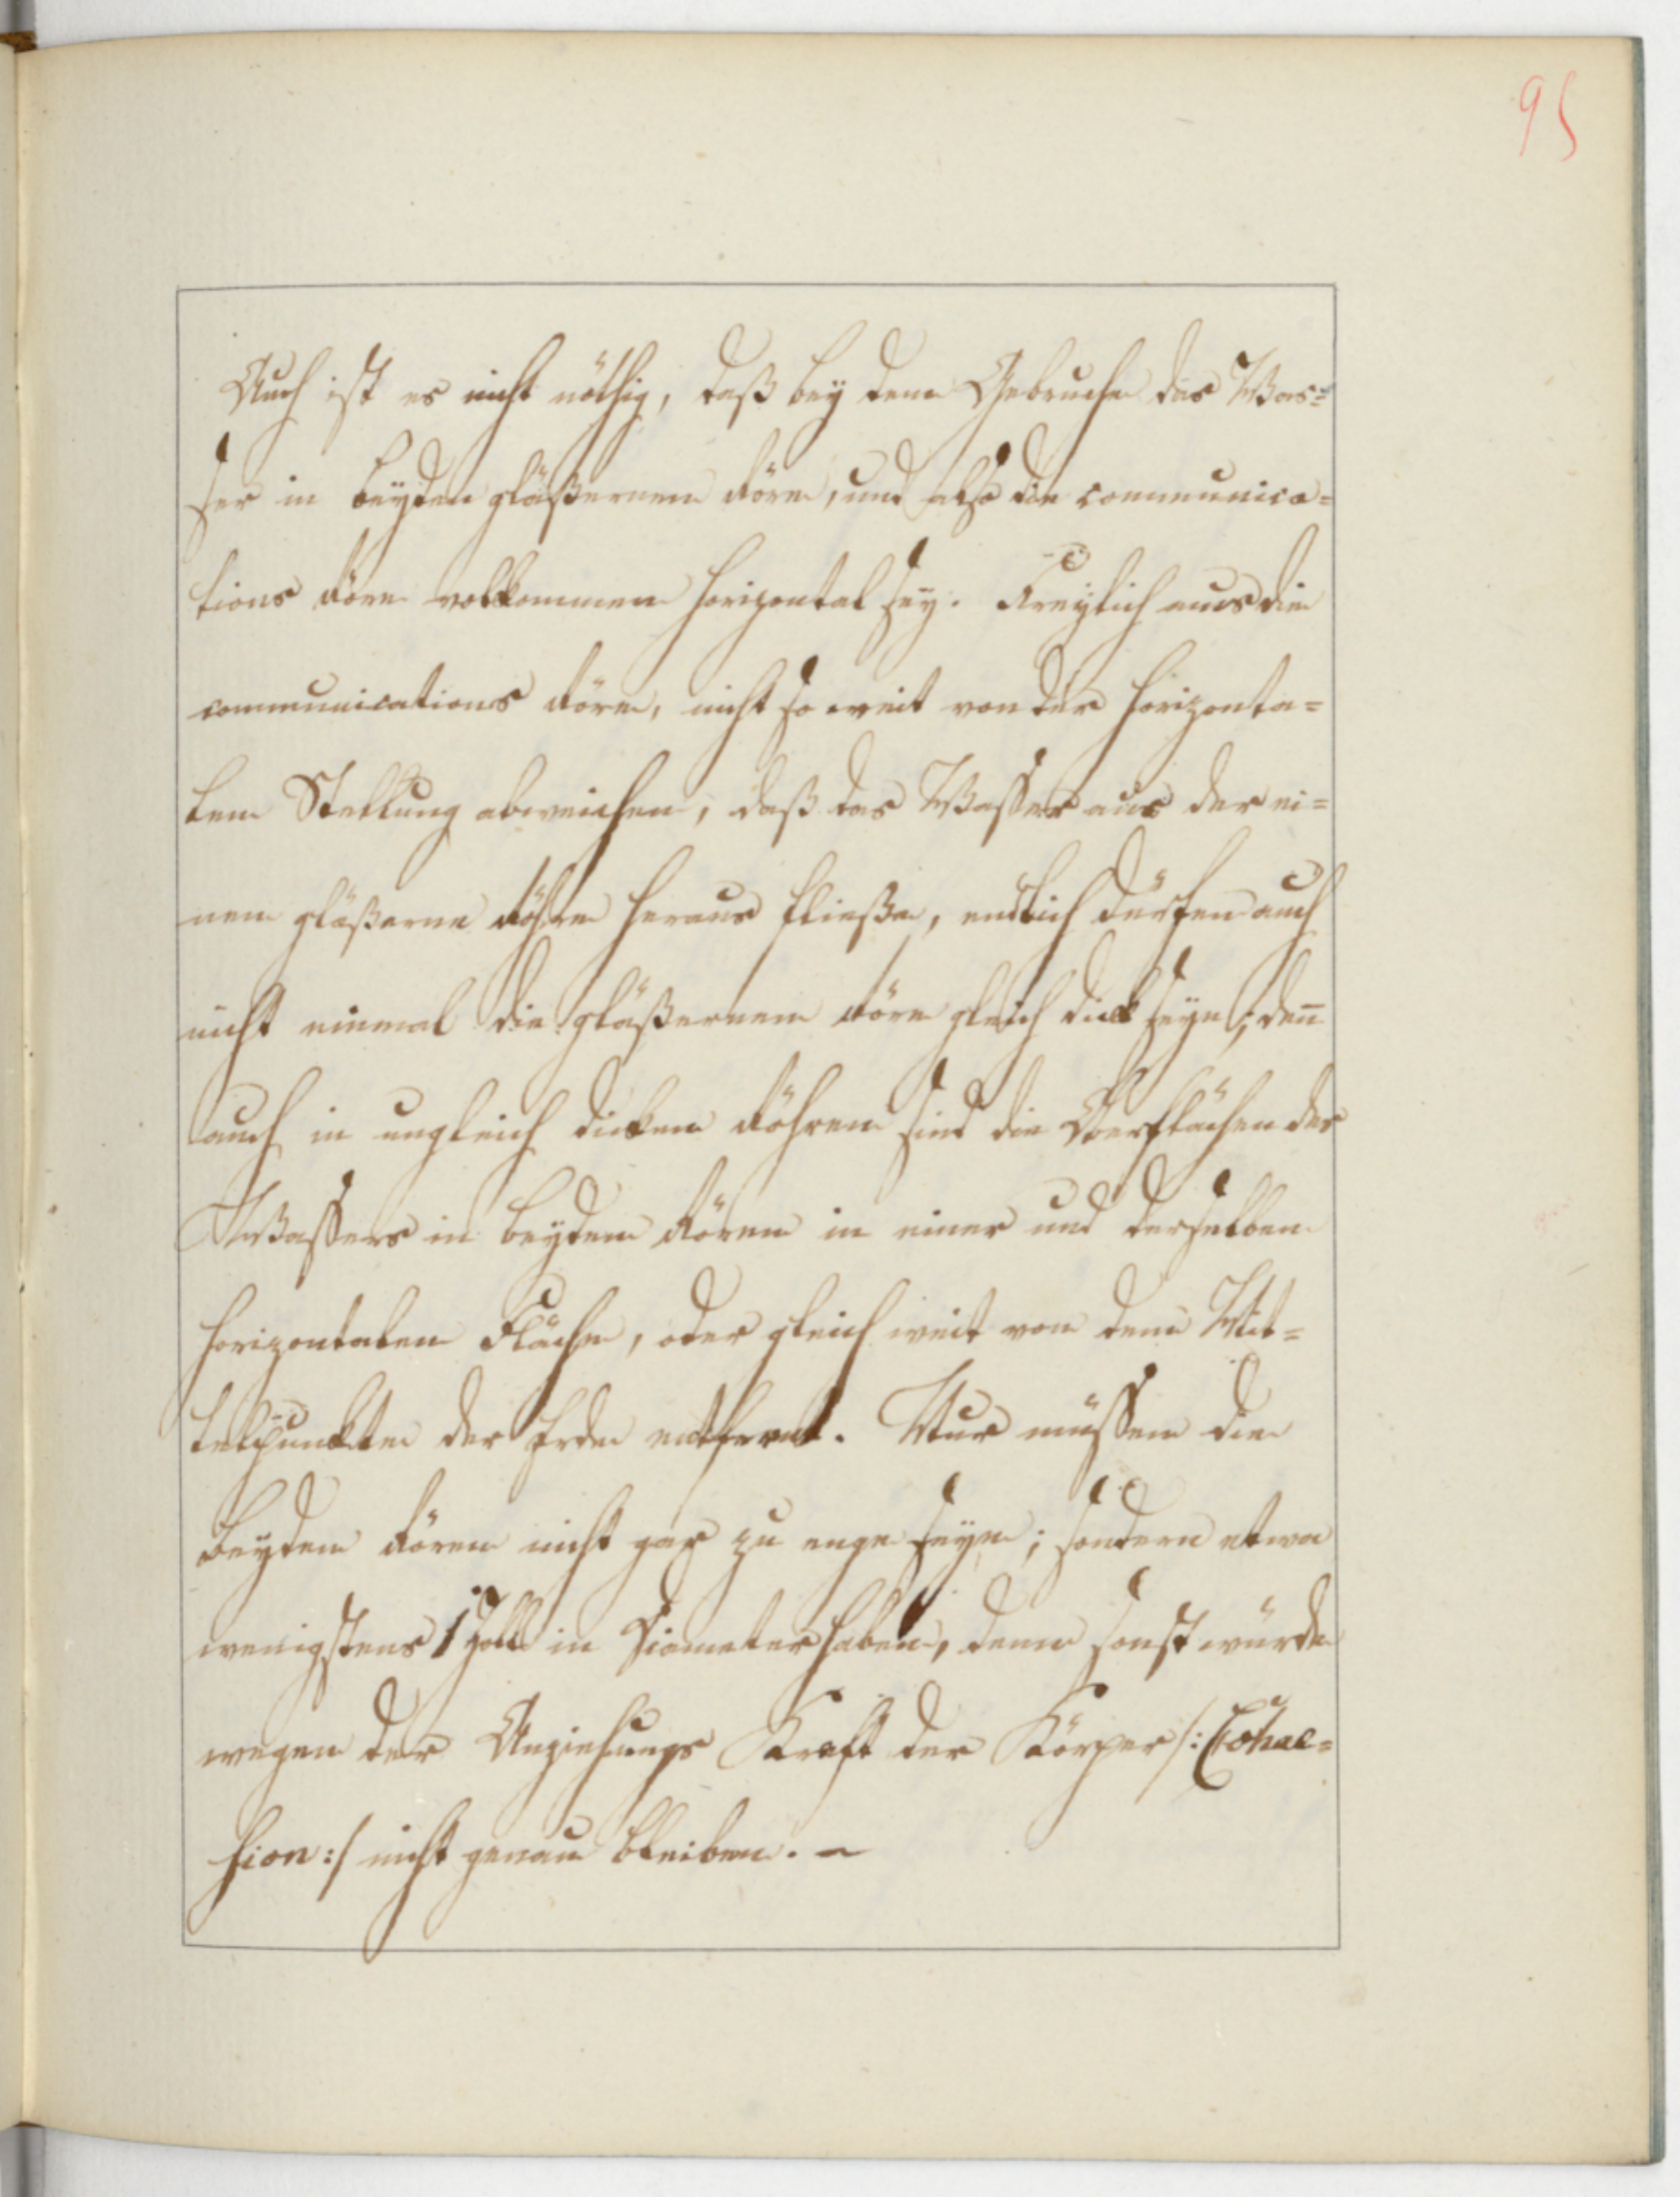 95
Auch ist es nicht nöthig, daß bey dem Gebrauche das Was=
ser in beyden gläßernen Röre, und also die communica=
tions Röre vollkommen horizontal sey. Freylich mus die
communications Röre, nicht so weit von der horizonta=
len Stellung abweichen, daß das Wasser aus der ei=
nen gläßerne Röhre heraus fließe, endlich dürfen auch
nicht einmal die gläßernen Röre gleich dick seyn; deñ
auch in ungleich dicken Röhren sind die Oberflächen des
Wassers in beyden Rören in einer und derselben
horizontalen Fläche, oder gleich weit von dem Mit=
telpunkte der Erde entfernt. Nur müssen die
beyden Rören nicht gar zu enge seyn; sondern etwa
wenigstens 1 Zoll in Diameter haben, denn sonst würde
wegen der Anziehungs Kraft der Körper /: Cohae=
sion :/ nicht genau bleiben. –